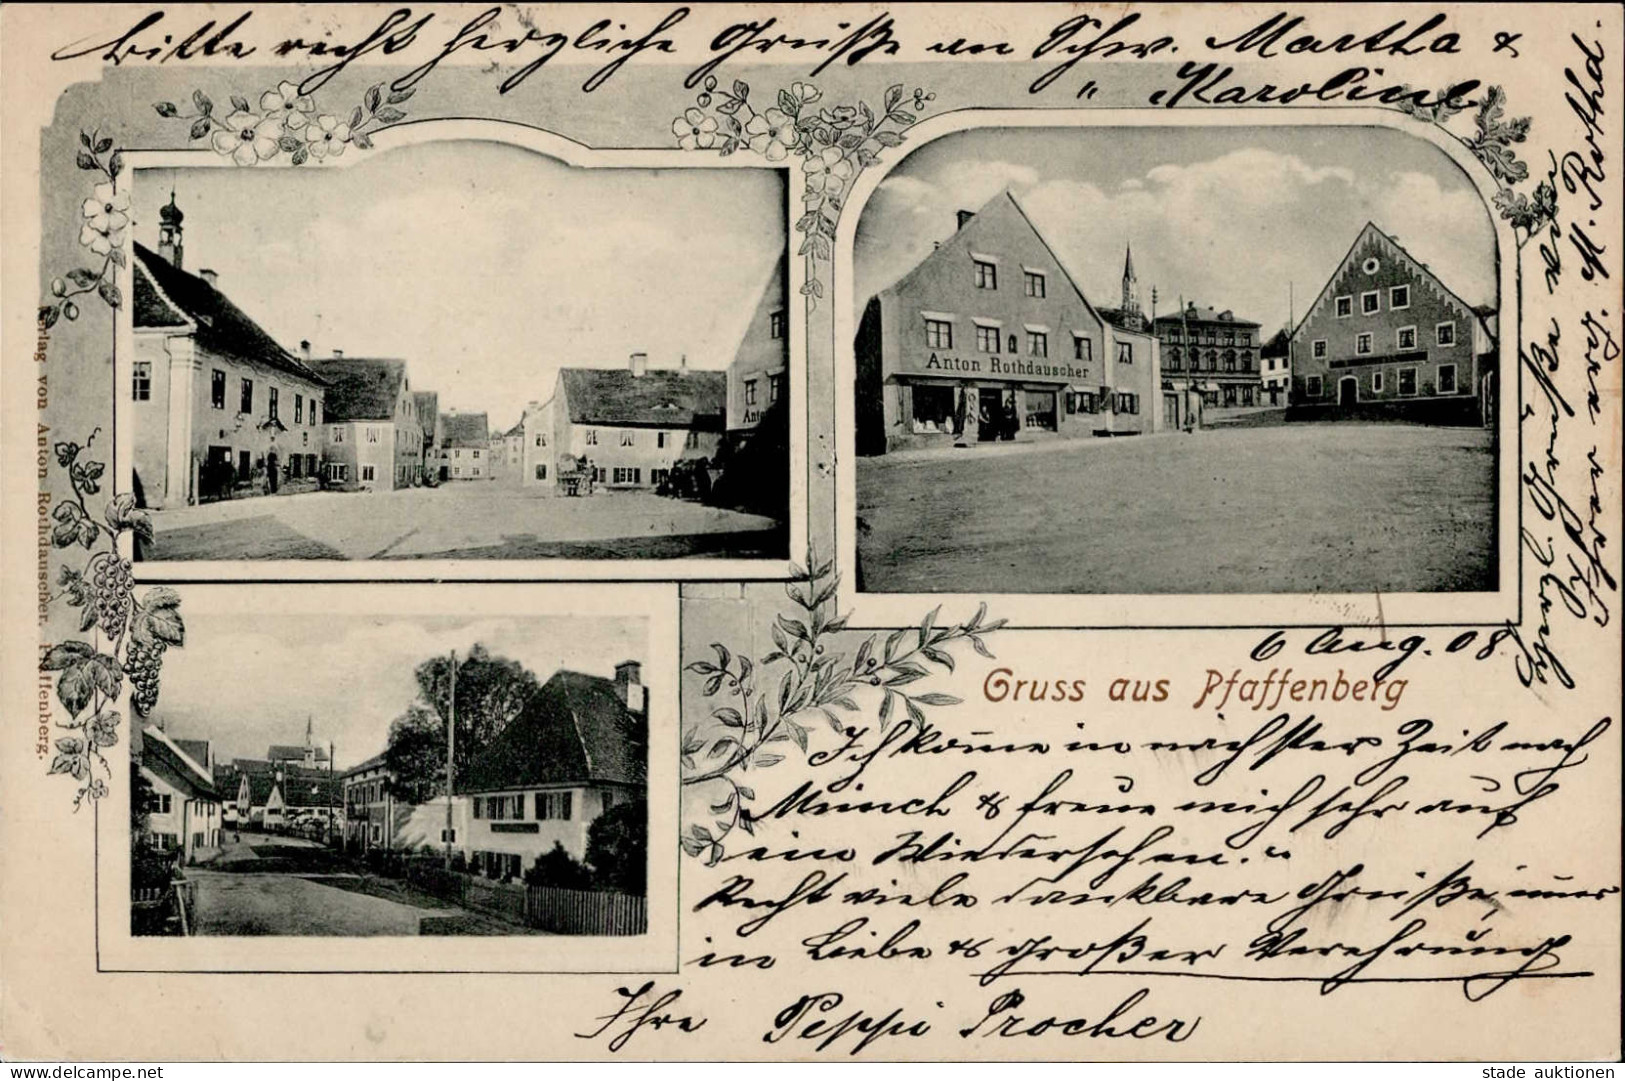 Bitte recht herzliche Grüße an Schw. Martha &
" Karoline
Anton Rothdauscher
Verlag von Anton Rothdauscher, Pfaffenberg.
6 Aug. 08.
Gruss aus Pfaffenberg
Ich komme in nächster Zeit nach
Münch & freue mich sehr auf
ein Wiedersehen."
Recht viele dankbare Grüße, immer
in Liebe & großer Verehrung
Ihre Peppi Procher
delcampe.net
stade auktionen